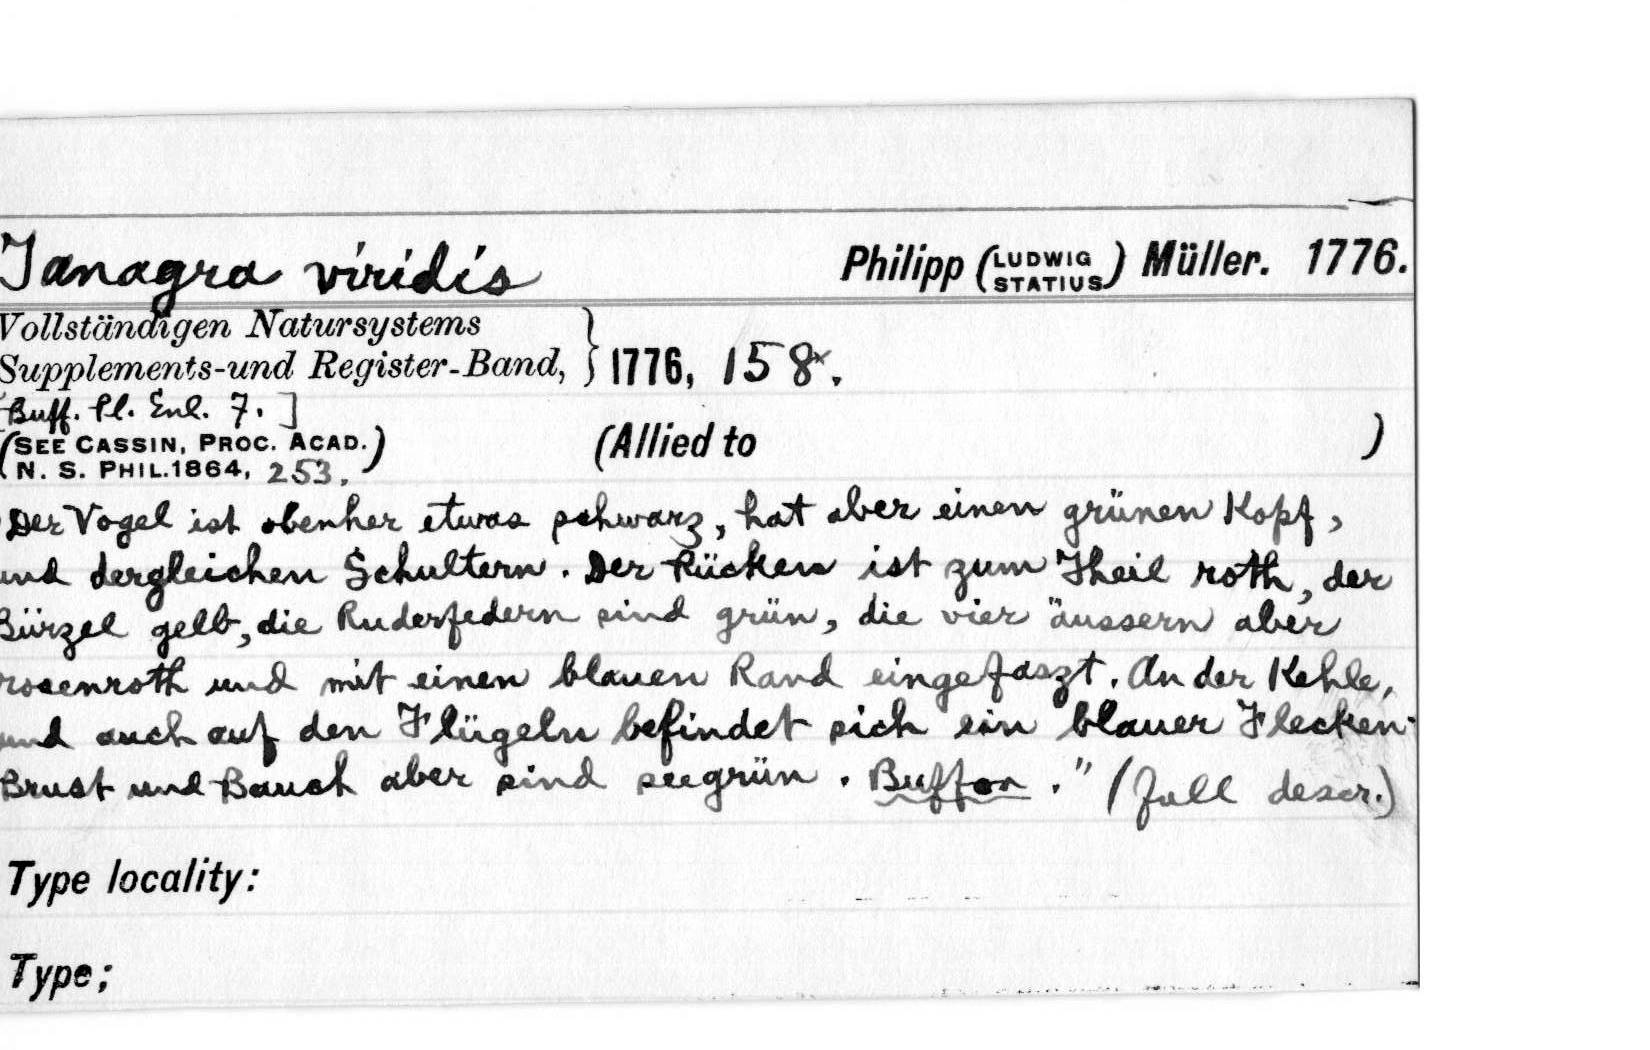 Tanagra viridis Philipp (LUDWIG STATIUS) Müller. 1776.
Vollständigen Natursystems
Supplements-und Register-Band, } 1776, 158x.
[Buff. Pl. Enl. 7.]
(SEE CASSIN, PROC. ACAD. (Allied to )
N. S. PHIL. 1864, 253.)
Der Vogel ist obenher etwas schwarz, hat aber einen grünen Kopf,
und dergleichen Schultern. Der Rücken ist zum Theil roth, der
Bürzel gelb, die Ruderfedern sind grün, die vier äussern aber
rosenroth und mit einen blauen Rand eingefaszt. An der Kehle,
und auch auf den Flügeln befindet sich ein blauer Flecken.
Brust und Bauch aber sind seegrün. Buffon." (full descr.)
Type locality:
Type;